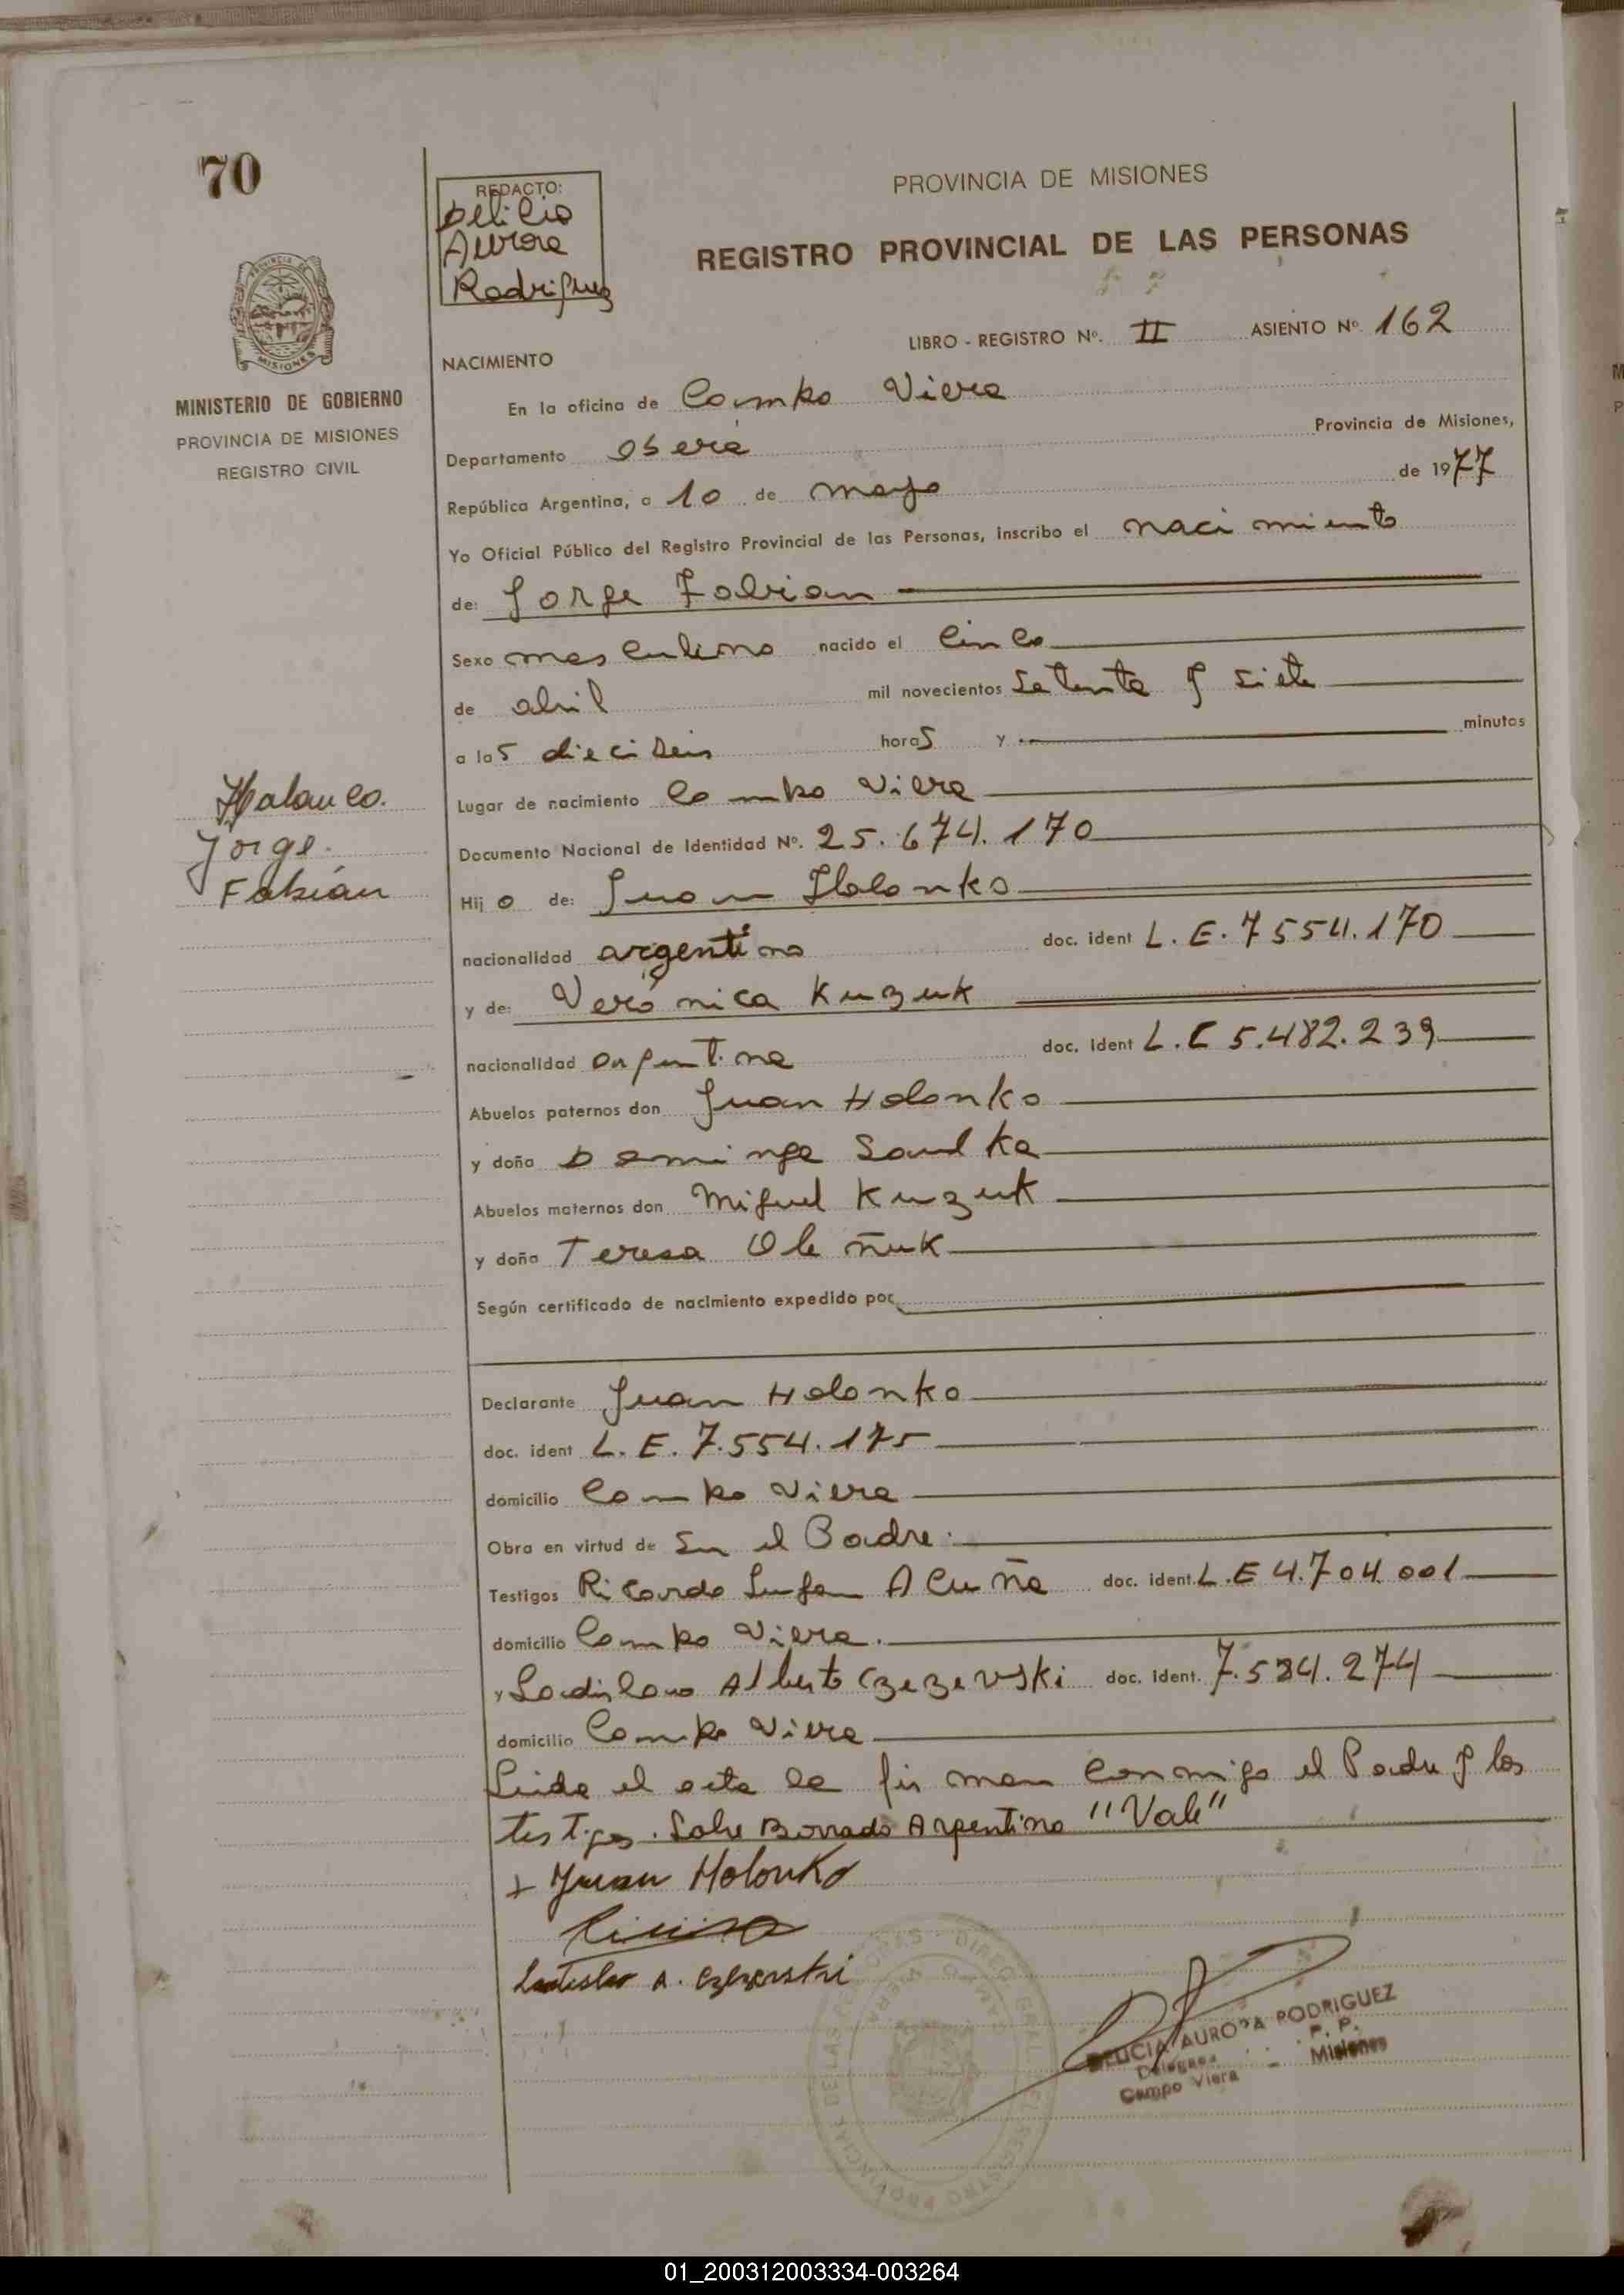 70
REDACTO:
Delicia
Aurora
Rodriguez
PROVINCIA DE MISIONES
REGISTRO PROVINCIAL DE LAS PERSONAS
PROVINCIA DE
MISIONES
MINISTERIO DE GOBIERNO
PROVINCIA DE MISIONES
REGISTRO CIVIL
LIBRO - REGISTRO Nº. II ASIENTO Nº. 162
NACIMIENTO
En la oficina de Campo Viera
Departamento Oberá Provincia de Misiones,
República Argentina, a 10 de mayo de 1977
Yo Oficial Público del Registro Provincial de las Personas, inscribo el nacimiento
de: Jorge Fabian
Sexo masculino nacido el cinco
de abril mil novecientos setenta y siete
a las dieciseis horas y minutos
Lugar de nacimiento Campo Viera
Documento Nacional de Identidad Nº. 25.674.170
Holanco.
Jorge.
Fabián
Hijo de: Juan Holonko
nacionalidad argentino doc. ident L. E. 7554.170
y de: Verónica Kuzuk
nacionalidad argentina doc. ident L. C 5.482.239
Abuelos paternos don Juan Holonko
y doña Dominga Saulka
Abuelos maternos don Miguel Kuzuk
y doña Teresa Oleñuk
Según certificado de nacimiento expedido por
Declarante Juan Holonko
doc. ident L. E. 7.554.175
domicilio Campo Viera
Obra en virtud de Ser el Padre.
Testigos Ricardo Acuña doc. ident. L.E 4.704.001
domicilio Campo Viera.
y Ladislavo Alberto Czezevski doc. ident. 7.584.274
domicilio Campo Viera
Leida el acta la firman conmigo el Padre y los
testigos. Sobre Borrado Argentino "Vale"
+ Juan Holonko
Ladislao A. Czezevski
DELICIA AURORA RODRIGUEZ
Delegada R. P. P.
Campo Viera - Misiones
01_200312003334-003264